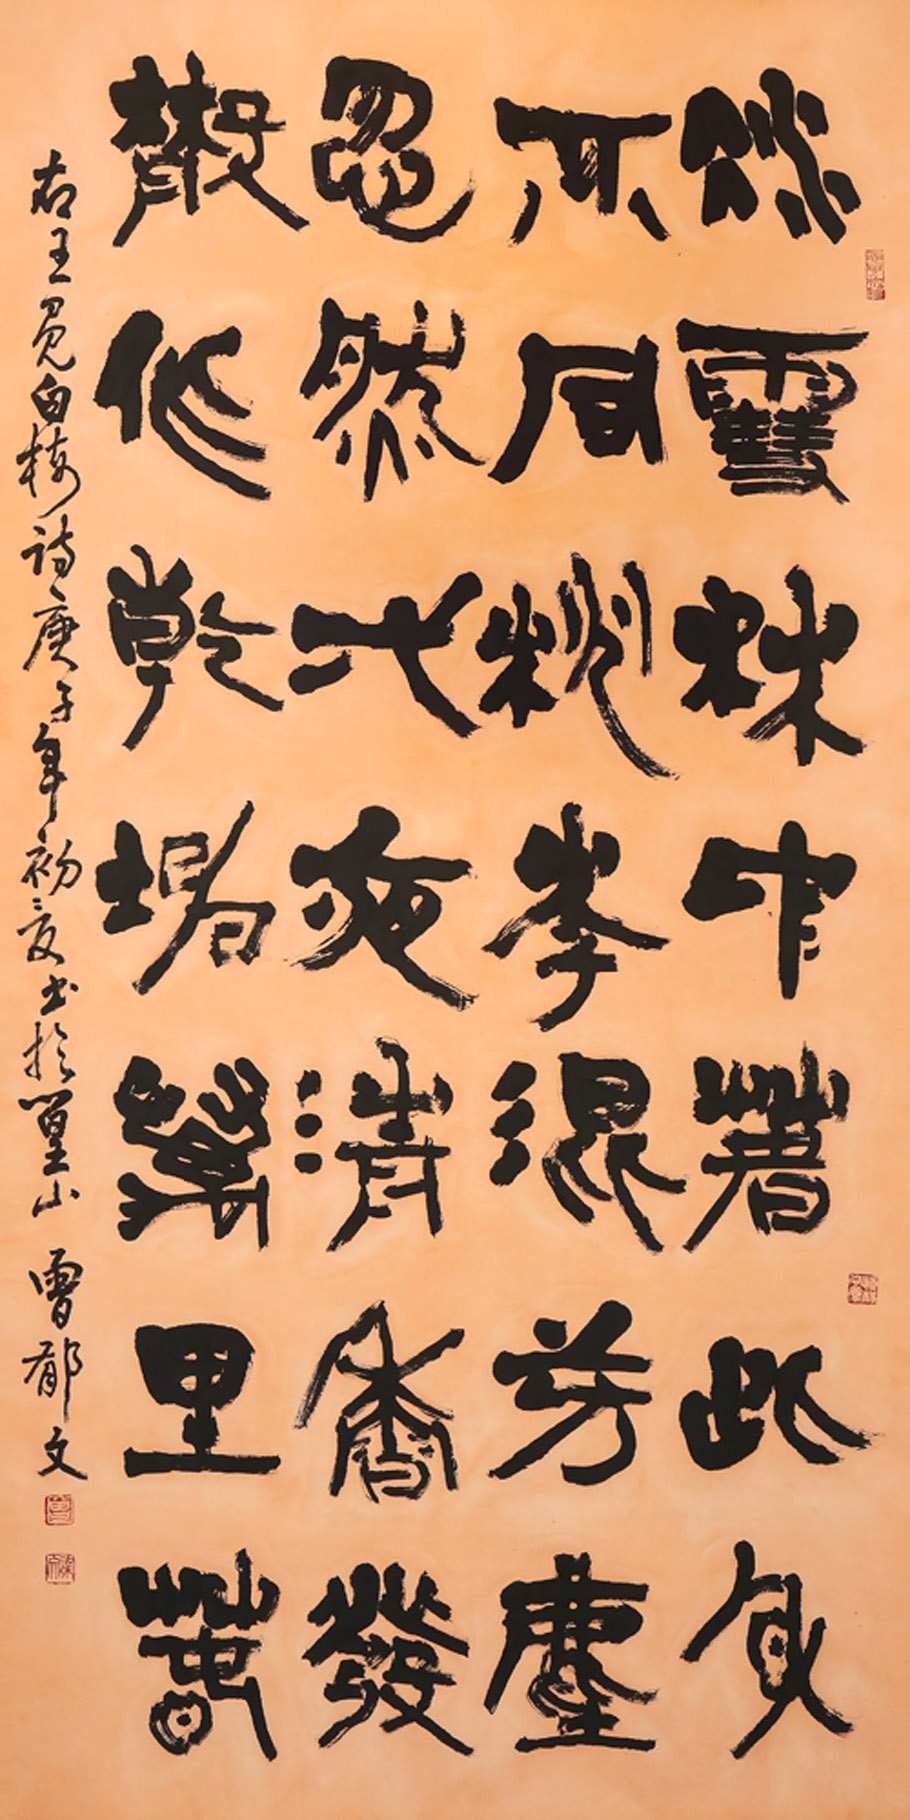 冰雪林中著此身
不同桃李混芳塵
忽然弌夜清香發
散作乾坤萬里春
右王冕白梅诗庚子年初夏书於篁山 曾郁文